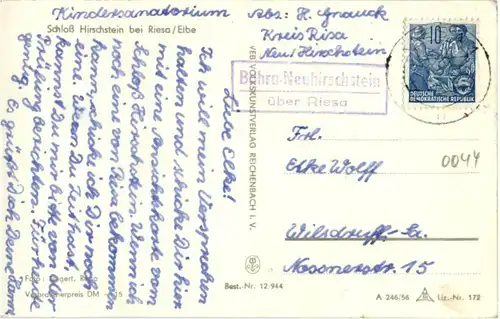 Kindersanatorium
Schloß Hirschstein bei Riesa/Elbe
Abs: H. Gnauck
Kreis Risa
Neu Hirschstein
Böhra-Neuhirschstein
über Riesa
10
DEUTSCHE
DEMOKRATISCHE REPUBLIK
Liebe Elke!
Ich will mein Versprechen
halten und schicke Dir hier
mit eine Ansichtskarte von
Schloß Hirschstein. Wenn ich
noch eine von Riesa bekommen
kann, schicke ich Dir noch
eine. Wenn Du Zeit hast,
kannst Du mir bitte von der
Prüfung berichten. Für heute
genug. Es grüßt Dich Deine
VEB VOLKSKUNSTVERLAG REICHENBACH I. V.
Frl.
Elke Wolff
0044
Wilsdruff-Sa.
Nossenerstr. 15
Foto: Riesa
Verbraucherpreis DM
Best.-Nr. 12 944
A 246/56 Liz.-Nr. 172